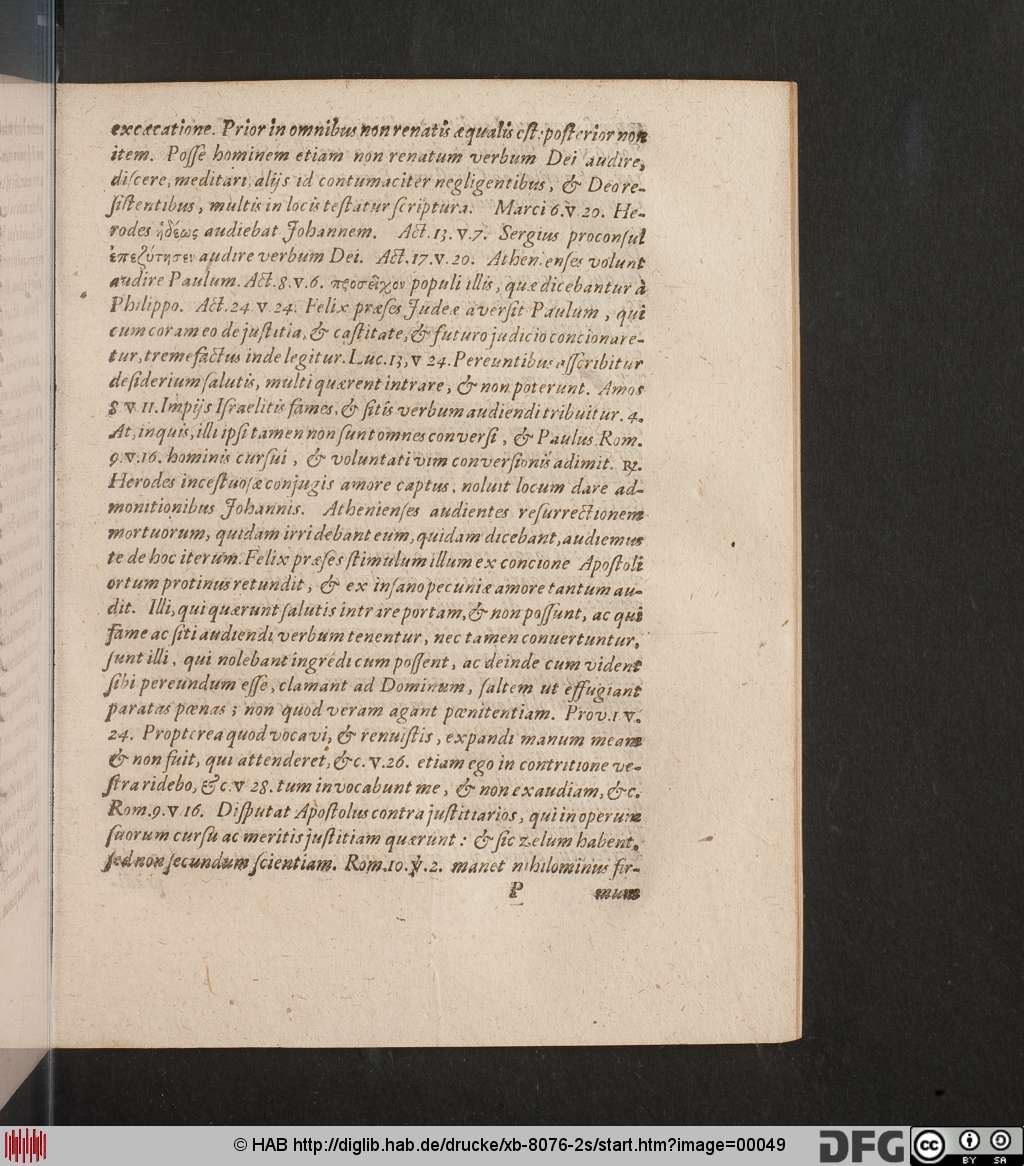 excæcatione. Prior in omnibus non renatis æqualis est: posterior non
item. Posse hominem etiam non renatum verbum Dei audire,
discere, meditari, alijs id contumaciter negligentibus, & Deo re-
sistentibus, multis in locis testatur scriptura. Marci 6. v 20. He-
rodes ἡδέως audiebat Johannem. Act. 13. v. 7. Sergius proconsul
ἐπεζύτησεν audire verbum Dei. Act. 17. v. 20. Athenienses volunt
audire Paulum. Act. 8. v. 6. προσεῖχον populi illis, quæ dicebantur à
Philippo. Act. 24 v 24. Felix præses Judeæ aversit Paulum, qui
cum coram eo de justitia, & castitate, & futuro judicio concionare-
tur, tremefactus inde legitur. Luc. 13, v 24. Pereuntibus asscribitur
desiderium salutis, multi quærent intrare, & non poterunt. Amos
8 v 11. Impijs Israelitis fames, & sitis verbum audiendi tribuitur. 4.
At, inquis, illi ipsi tamen non sunt omnes conversi, & Paulus Rom.
9. v. 16. hominis cursui, & voluntati vim conversionis adimit. ℞.
Herodes incestuosæ conjugis amore captus, noluit locum dare ad-
monitionibus Johannis. Athenienses audientes resurrectionem
mortuorum, quidam irridebant eum, quidam dicebant, audiemus
te de hoc iterum. Felix præses stimulum illum ex concione Apostoli
ortum protinus retundit, & ex insano pecuniæ amore tantum au-
dit. Illi, qui quærunt salutis intrare portam, & non possunt, ac qui
fame ac siti audiendi verbum tenentur, nec tamen convertuntur,
sunt illi, qui nolebant ingredi cum possent, ac deinde cum vident
sibi pereundum esse, clamant ad Dominum, saltem ut effugiant
paratas pœnas; non quod veram agant pœnitentiam. Prov. 1 v.
24. Propterea quod vocavi, & renuistis, expandi manum meam
& non fuit, qui attenderet, &c. v. 26. etiam ego in contritione ve-
stra ridebo, &c. v 28. tum invocabunt me, & non exaudiam, &c.
Rom. 9. v 16. Disputat Apostolus contra justitiarios, qui in operum
suorum cursu ac meritis justitiam quærunt: & sic zelum habent,
sed non secundum scientiam. Rom. 10. v. 2. manet nihilominus fir-
P mum
© HAB http://diglib.hab.de/drucke/xb-8076-2s/start.htm?image=00049
DFG cc BY SA